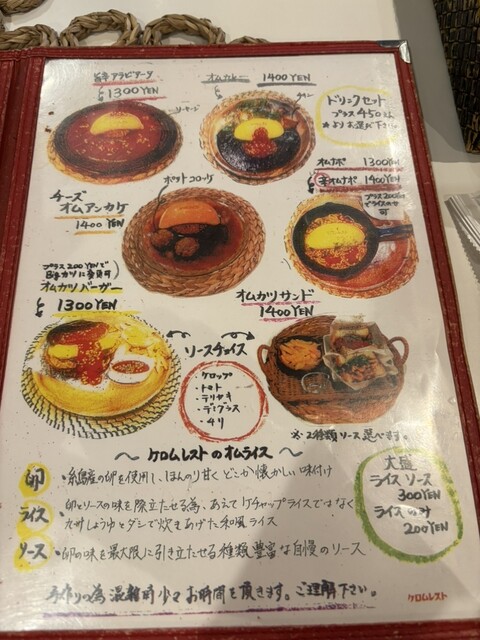 旨辛アラビアータ
1300YEN
ソーセージ
オムカレー 1400YEN
チキン
ドリンクセット
プラス450YEN
★よりお選び下さい
オムナポ 1300YEN
辛オムナポ 1400YEN
プラス200YEN
でライスのせ
可
ポテトコロッケ
チーズ
オムアンカケ
1400YEN
プラス200YENで
変更可
オムカツバーガー
1300YEN
オムカツサンド
1400YEN
ソースチョイス
・ケロップ
・トマト
・テリヤキ
・デミグラス
・チリ
※2種類ソース選べます。
〜ケロムレストのオムライス〜
卵 ・糸島産の卵を使用し、ほんのり甘くどこか懐かしい味付け
ライス ・卵とソースの味を際立たせる為、あえてケチャップライスではなく
九州しょうゆとダシで炊きあげた和風ライス
ソース ・卵の味を最大限に引き立たせる種類豊富な自慢のソース
大盛
ライスソース
300YEN
ライスのみ
200YEN
手作りの為混雑時少々お時間を頂きます。ご理解下さい。
ケロムレスト